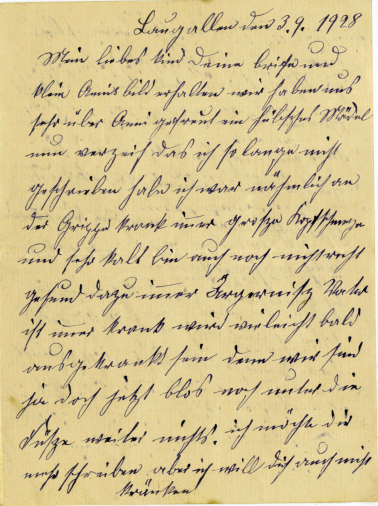 Laugallen den 3.9. 1928
Mein liebes Kind Deine briefe und
klein Annis bild erhalten wir haben uns
sehr über Anni gefreut ein hübsches Mädel
nun verzeih das ich so lange nicht
geschrieben habe ich war nähmlich an
der Grippe krank imer grosze Kopfschmerze
und sehr kalt bin auch noch nicht recht
gesund dazu imer Ärgernisz Vater
ist imer krank wird vieleicht bald
ausgekrankt sein denn wir sind
ja doch jetzt blos noch unter die
Füsze weiter nichts. ich möchte dir
mehr schreiben aber ich will dich auch nicht
kränken